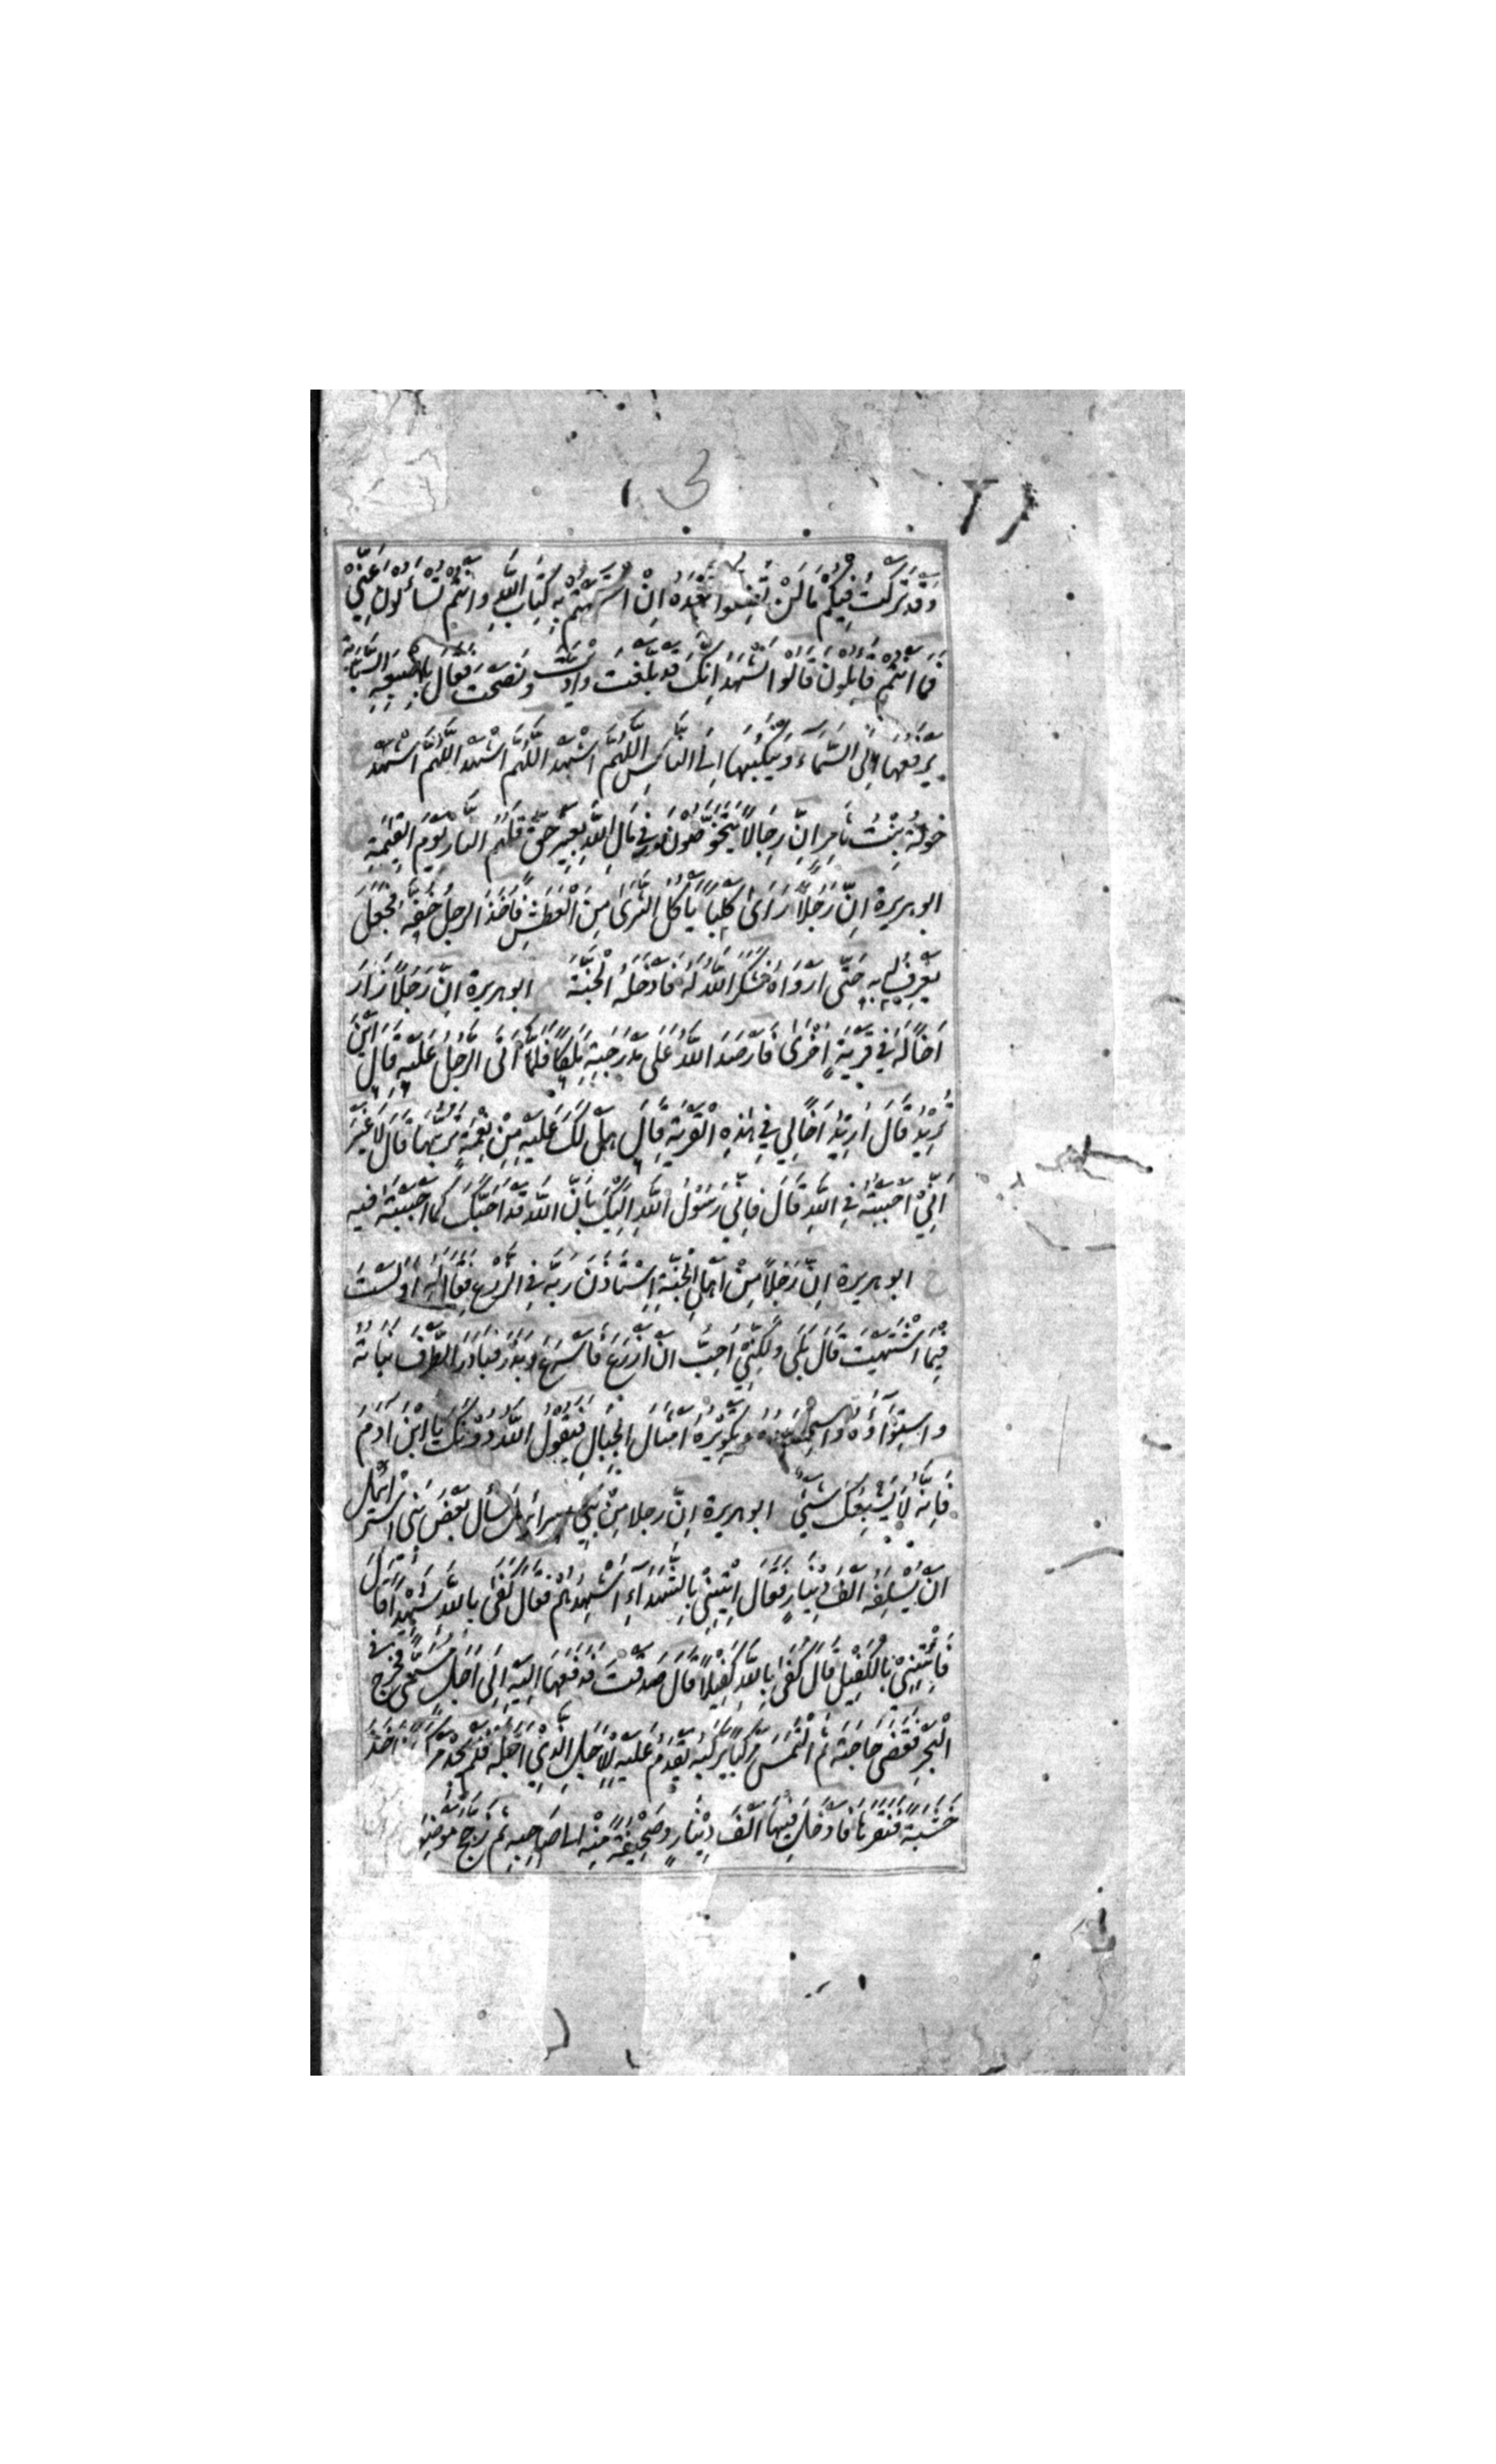 وَقَدْ تَرَكْتُ فِيكُمْ مَا لَنْ تَضِلُّوا بَعْدَهُ اِنْ اعْتَصَمْتُمْ بِهِ كِتَابَ اللَّهِ وَاَنْتُمْ تُسْأَلُونَ عَنِّي
فَمَا اَنْتُمْ قَائِلُونَ قَالُوا نَشْهَدُ اَنَّكَ قَدْ بَلَّغْتَ وَاَدَّيْتَ وَنَصَحْتَ فَقَالَ بِاِصْبَعِهِ السَّبَّابَةِ
يَرْفَعُهَا اِلَى السَّمَاءِ وَيَنْكُتُهَا اِلَى النَّاسِ اللَّهُمَّ اشْهَدْ اللَّهُمَّ اشْهَدْ اللَّهُمَّ اشْهَدْ
خَوْلَةُ بِنْتُ ثَامِرٍ اِنَّ رِجَالًا يَتَخَوَّضُونَ فِي مَالِ اللَّهِ بِغَيْرِ حَقٍّ فَلَهُمُ النَّارُ يَوْمَ الْقِيمَةِ
ابو هريرة اِنَّ رَجُلًا رَاَىٰ كَلْبًا يَأْكُلُ الثَّرَىٰ مِنَ الْعَطَشِ فَاَخَذَ الرَّجُلُ خُفَّهُ فَجَعَلَ
يَغْرِفُ لَهُ بِهِ حَتَّى اَرْوَاهُ فَشَكَرَ اللَّهُ لَهُ فَاَدْخَلَهُ الْجَنَّةَ ابو هريرة اِنَّ رَجُلًا زَارَ
اَخًا لَهُ فِي قَرْيَةٍ اُخْرَىٰ فَاَرْصَدَ اللَّهُ عَلَى مَدْرَجَتِهِ مَلَكًا فَلَمَّا اَتَى الرَّجُلُ عَلَيْهِ قَالَ اَيْنَ
تُرِيدُ قَالَ اُرِيدُ اَخًا لِي فِي هٰذِهِ الْقَرْيَةِ قَالَ هَلْ لَكَ عَلَيْهِ مِنْ نِعْمَةٍ تَرُبُّهَا قَالَ لَا غَيْرَ
اَنِّي اَحْبَبْتُهُ فِي اللَّهِ قَالَ فَاِنِّي رَسُولُ اللَّهِ اِلَيْكَ بِاَنَّ اللَّهَ قَدْ اَحَبَّكَ كَمَا اَحْبَبْتَهُ فِيهِ
خ ابو هريرة اِنَّ رَجُلًا مِنْ اَهْلِ الْجَنَّةِ اِسْتَأْذَنَ رَبَّهُ فِي الزَّرْعِ فَقَالَ لَهُ اَوَلَسْتَ
فِيمَا اشْتَهَيْتَ قَالَ بَلَى وَلٰكِنِّي اُحِبُّ اَنْ اَزْرَعَ فَاَسْرَعَ وَبَذَرَ فَبَادَرَ الطَّرْفَ نَبَاتُهُ
وَاسْتِوَاؤُهُ وَاسْتِحْصَادُهُ وَتَكْوِيرُهُ اَمْثَالَ الْجِبَالِ فَيَقُولُ اللَّهُ دُونَكَ يَا ابْنَ آدَمَ
فَاِنَّهُ لَا يُشْبِعُكَ شَيْءٌ ابو هريرة اِنَّ رجلا مِنْ بَنِي اسرائيل سَأَلَ بَعْضَ بَنِي اِسْرَائِيلَ
اَنْ يُسْلِفَهُ اَلْفَ دِينَارٍ فَقَالَ اِئْتِنِي بِالشُّهَدَاءِ اُشْهِدُهُمْ فَقَالَ كَفَى بِاللَّهِ شَهِيدًا قَالَ
فَأْتِنِي بِالْكَفِيلِ قَالَ كَفَى بِاللَّهِ كَفِيلًا قَالَ صَدَقْتَ فَدَفَعَهَا اِلَيْهِ اِلَى اَجَلٍ مُسَمًّى فَخَرَجَ فِي
الْبَحْرِ فَقَضَى حَاجَتَهُ ثُمَّ الْتَمَسَ مَرْكَبًا يَرْكَبُهُ يَقْدَمُ عَلَيْهِ لِلْاَجَلِ الَّذِي اَجَّلَهُ فَلَمْ يَجِدْ مَرْكَبًا فَاَخَذَ
خَشَبَةً فَنَقَرَهَا فَاَدْخَلَ فِيهَا اَلْفَ دِينَارٍ وَصَحِيفَةً مِنْهُ الى صَاحِبِهِ ثُمَّ زَجَّجَ مَوْضِعَهَا